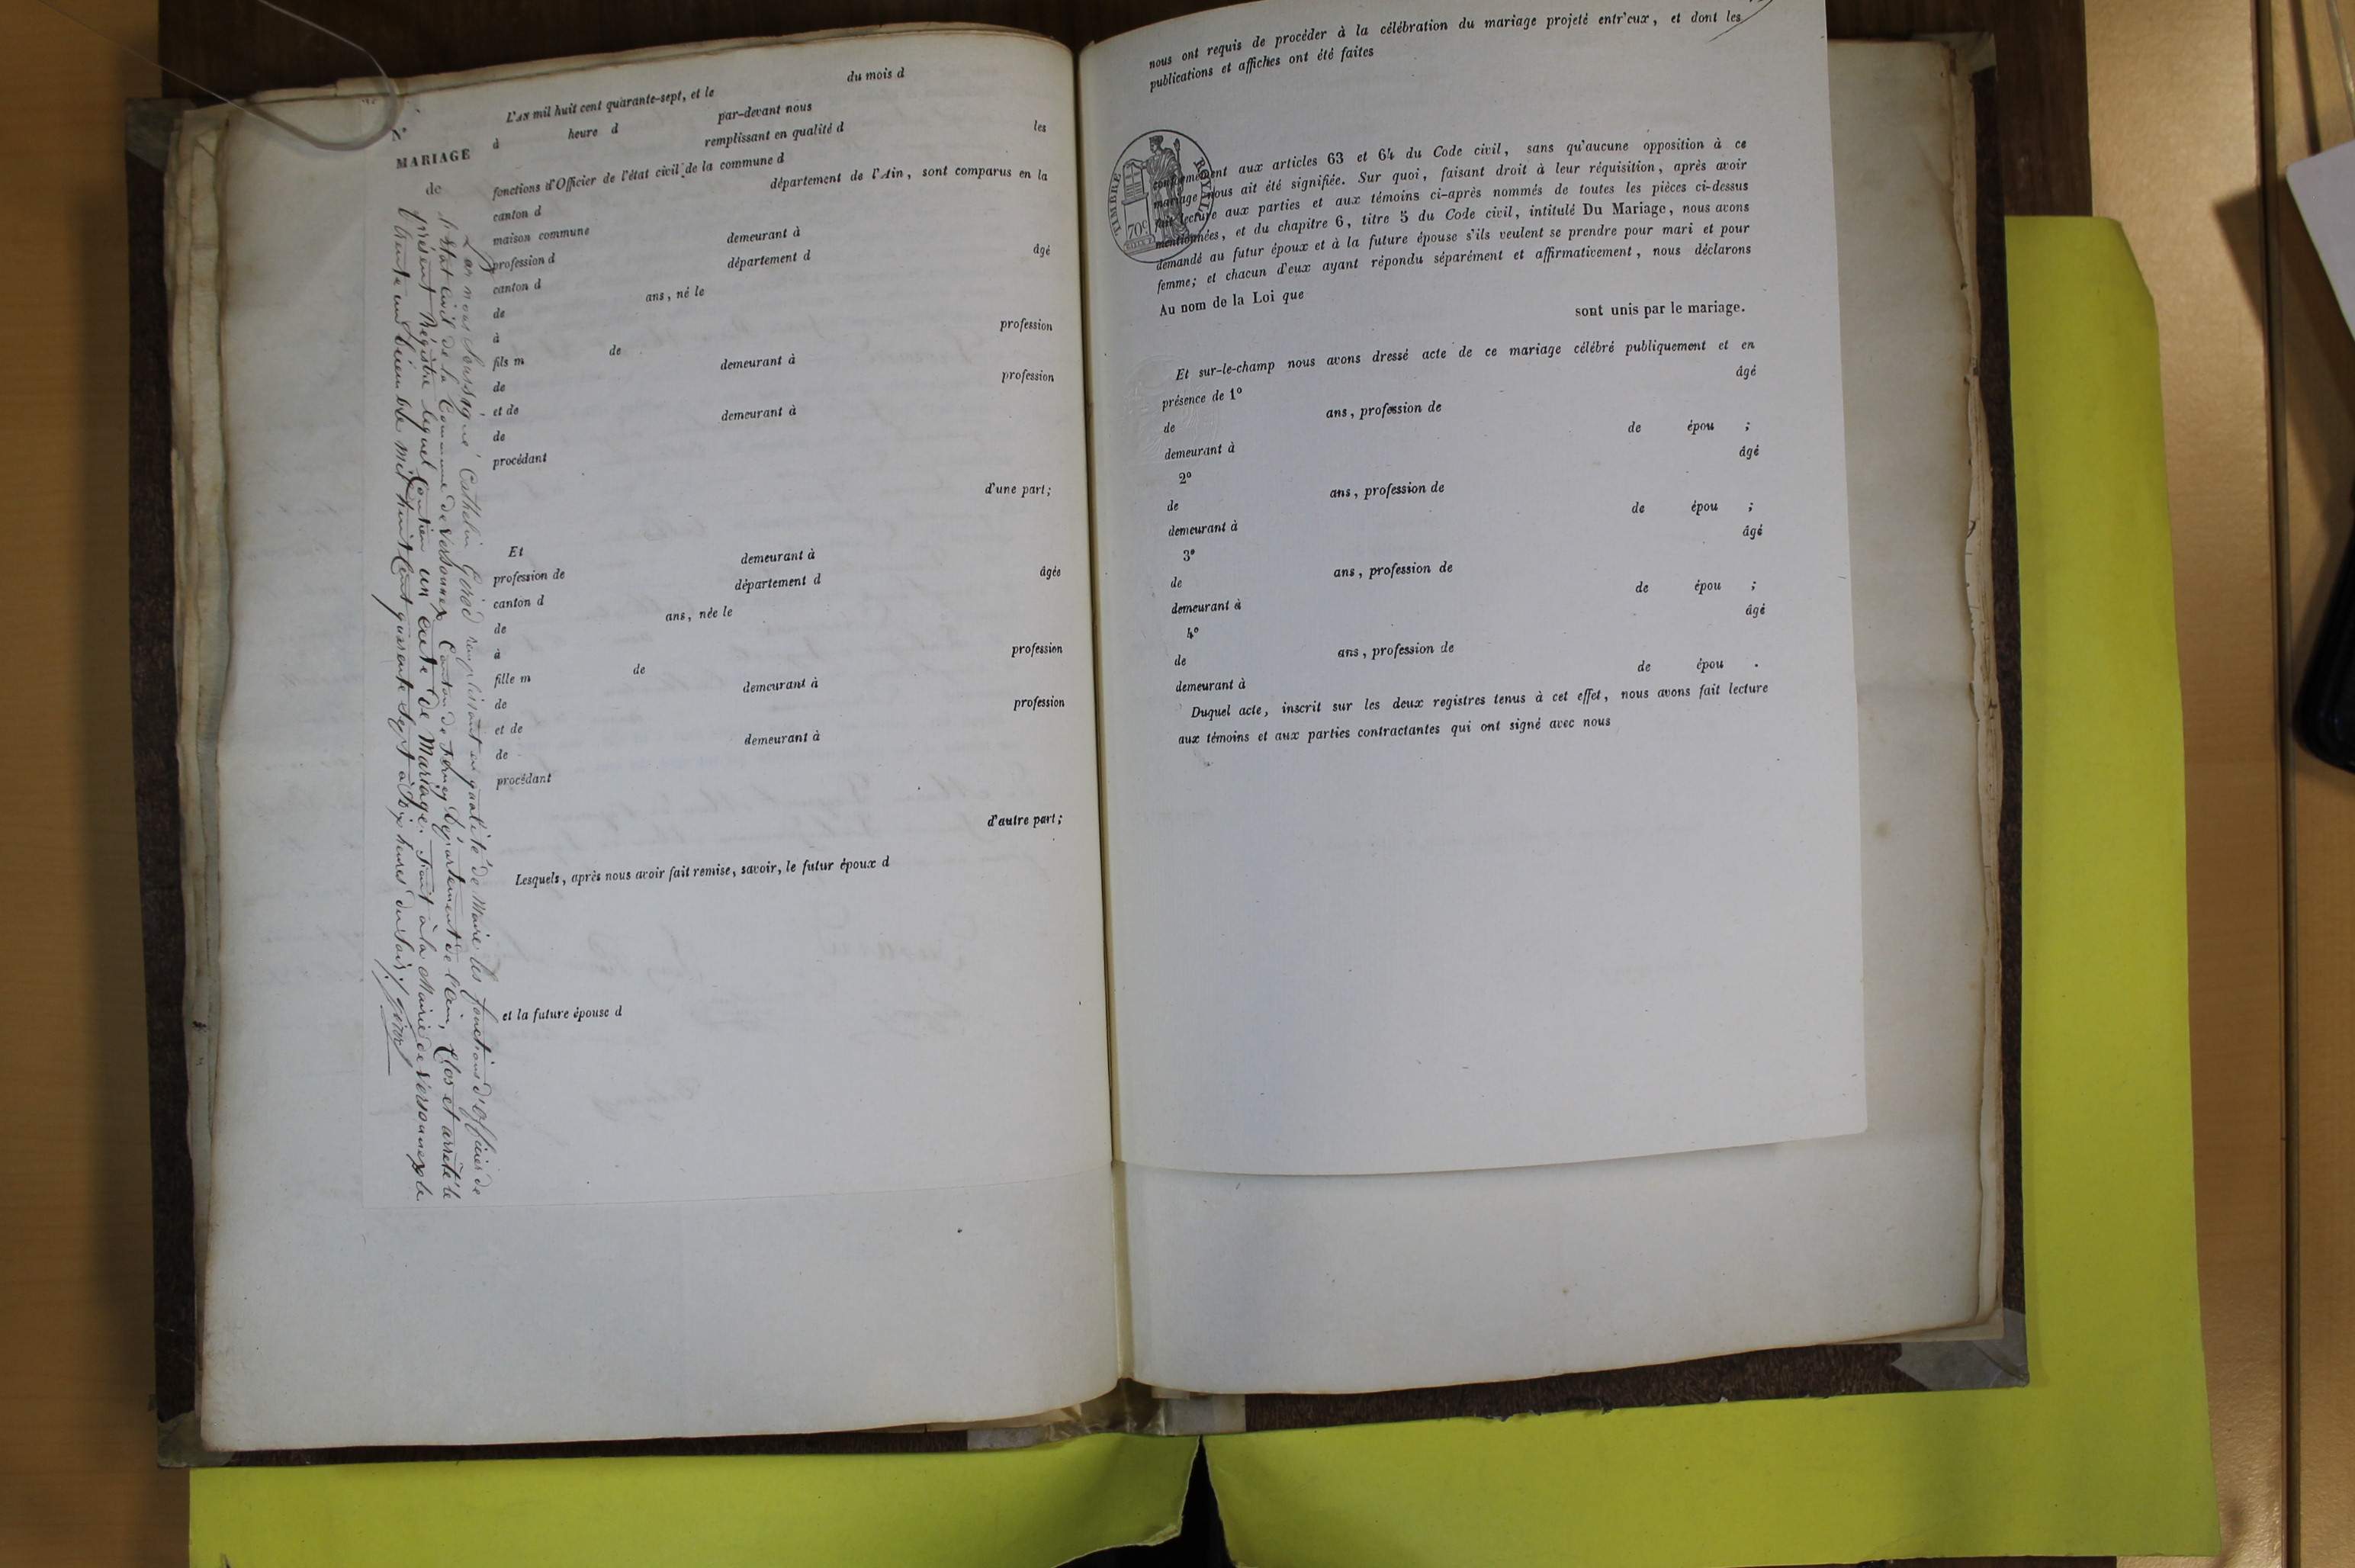 MARIAGE
de
Par nous soussigné Cathelin Girod remplissant en qualité de Maire les fonctions d'officier de
l'état civil de la Commune de Versonnex Canton de Ferney Département de l'ain, Clos et arrêté le
présent Régistre lequel Contien un acte De Mariage. Fait à la Mairie de Versonnex le
trente un Décembre mil huit Cent quarante sept à Six heures du soir. Girod
L'AN mil huit cent quarante-sept, et le du mois d
à heure d par-devant nous
remplissant en qualité d les
fonctions d'Officier de l'état civil de la commune d
canton d département de l'Ain, sont comparus en la
maison commune
profession d demeurant à
canton d département d âgé
de ans, né le
à
fils m de profession
de demeurant à
et de profession
de demeurant à
procédant
d'une part;
Et
profession de demeurant à
canton d département d âgée
de ans, née le
à
fille m de profession
de demeurant à
et de profession
de demeurant à
procédant
d'autre part;
Lesquels, après nous avoir fait remise, savoir, le futur époux d
et la future épouse d
nous ont requis de procéder à la célébration du mariage projeté entr'eux, et dont les
publications et affiches ont été faites
TIMBRE ROYAL
70c
conformément aux articles 63 et 64 du Code civil, sans qu'aucune opposition à ce
mariage nous ait été signifiée. Sur quoi, faisant droit à leur réquisition, après avoir
fait lecture aux parties et aux témoins ci-après nommés de toutes les pièces ci-dessus
mentionnées, et du chapitre 6, titre 5 du Code civil, intitulé Du Mariage, nous avons
demandé au futur époux et à la future épouse s'ils veulent se prendre pour mari et pour
femme; et chacun d'eux ayant répondu séparément et affirmativement, nous déclarons
Au nom de la Loi que
sont unis par le mariage.
Et sur-le-champ nous avons dressé acte de ce mariage célébré publiquement et en
présence de 1º âgé
de ans, profession de
demeurant à de épou ;
2º âgé
de ans, profession de
demeurant à de épou ;
3º âgé
de ans, profession de
demeurant à de épou ;
4º âgé
de ans, profession de
demeurant à de épou .
Duquel acte, inscrit sur les deux registres tenus à cet effet, nous avons fait lecture
aux témoins et aux parties contractantes qui ont signé avec nous